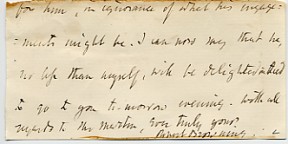 for him, in ignorance of what his engage-
ments might be. I can now say that he
no less than myself, will be delighted indeed
to go to you to-morrow evening. With all
regards to Mr Martin, yours truly yours
Robert Browning